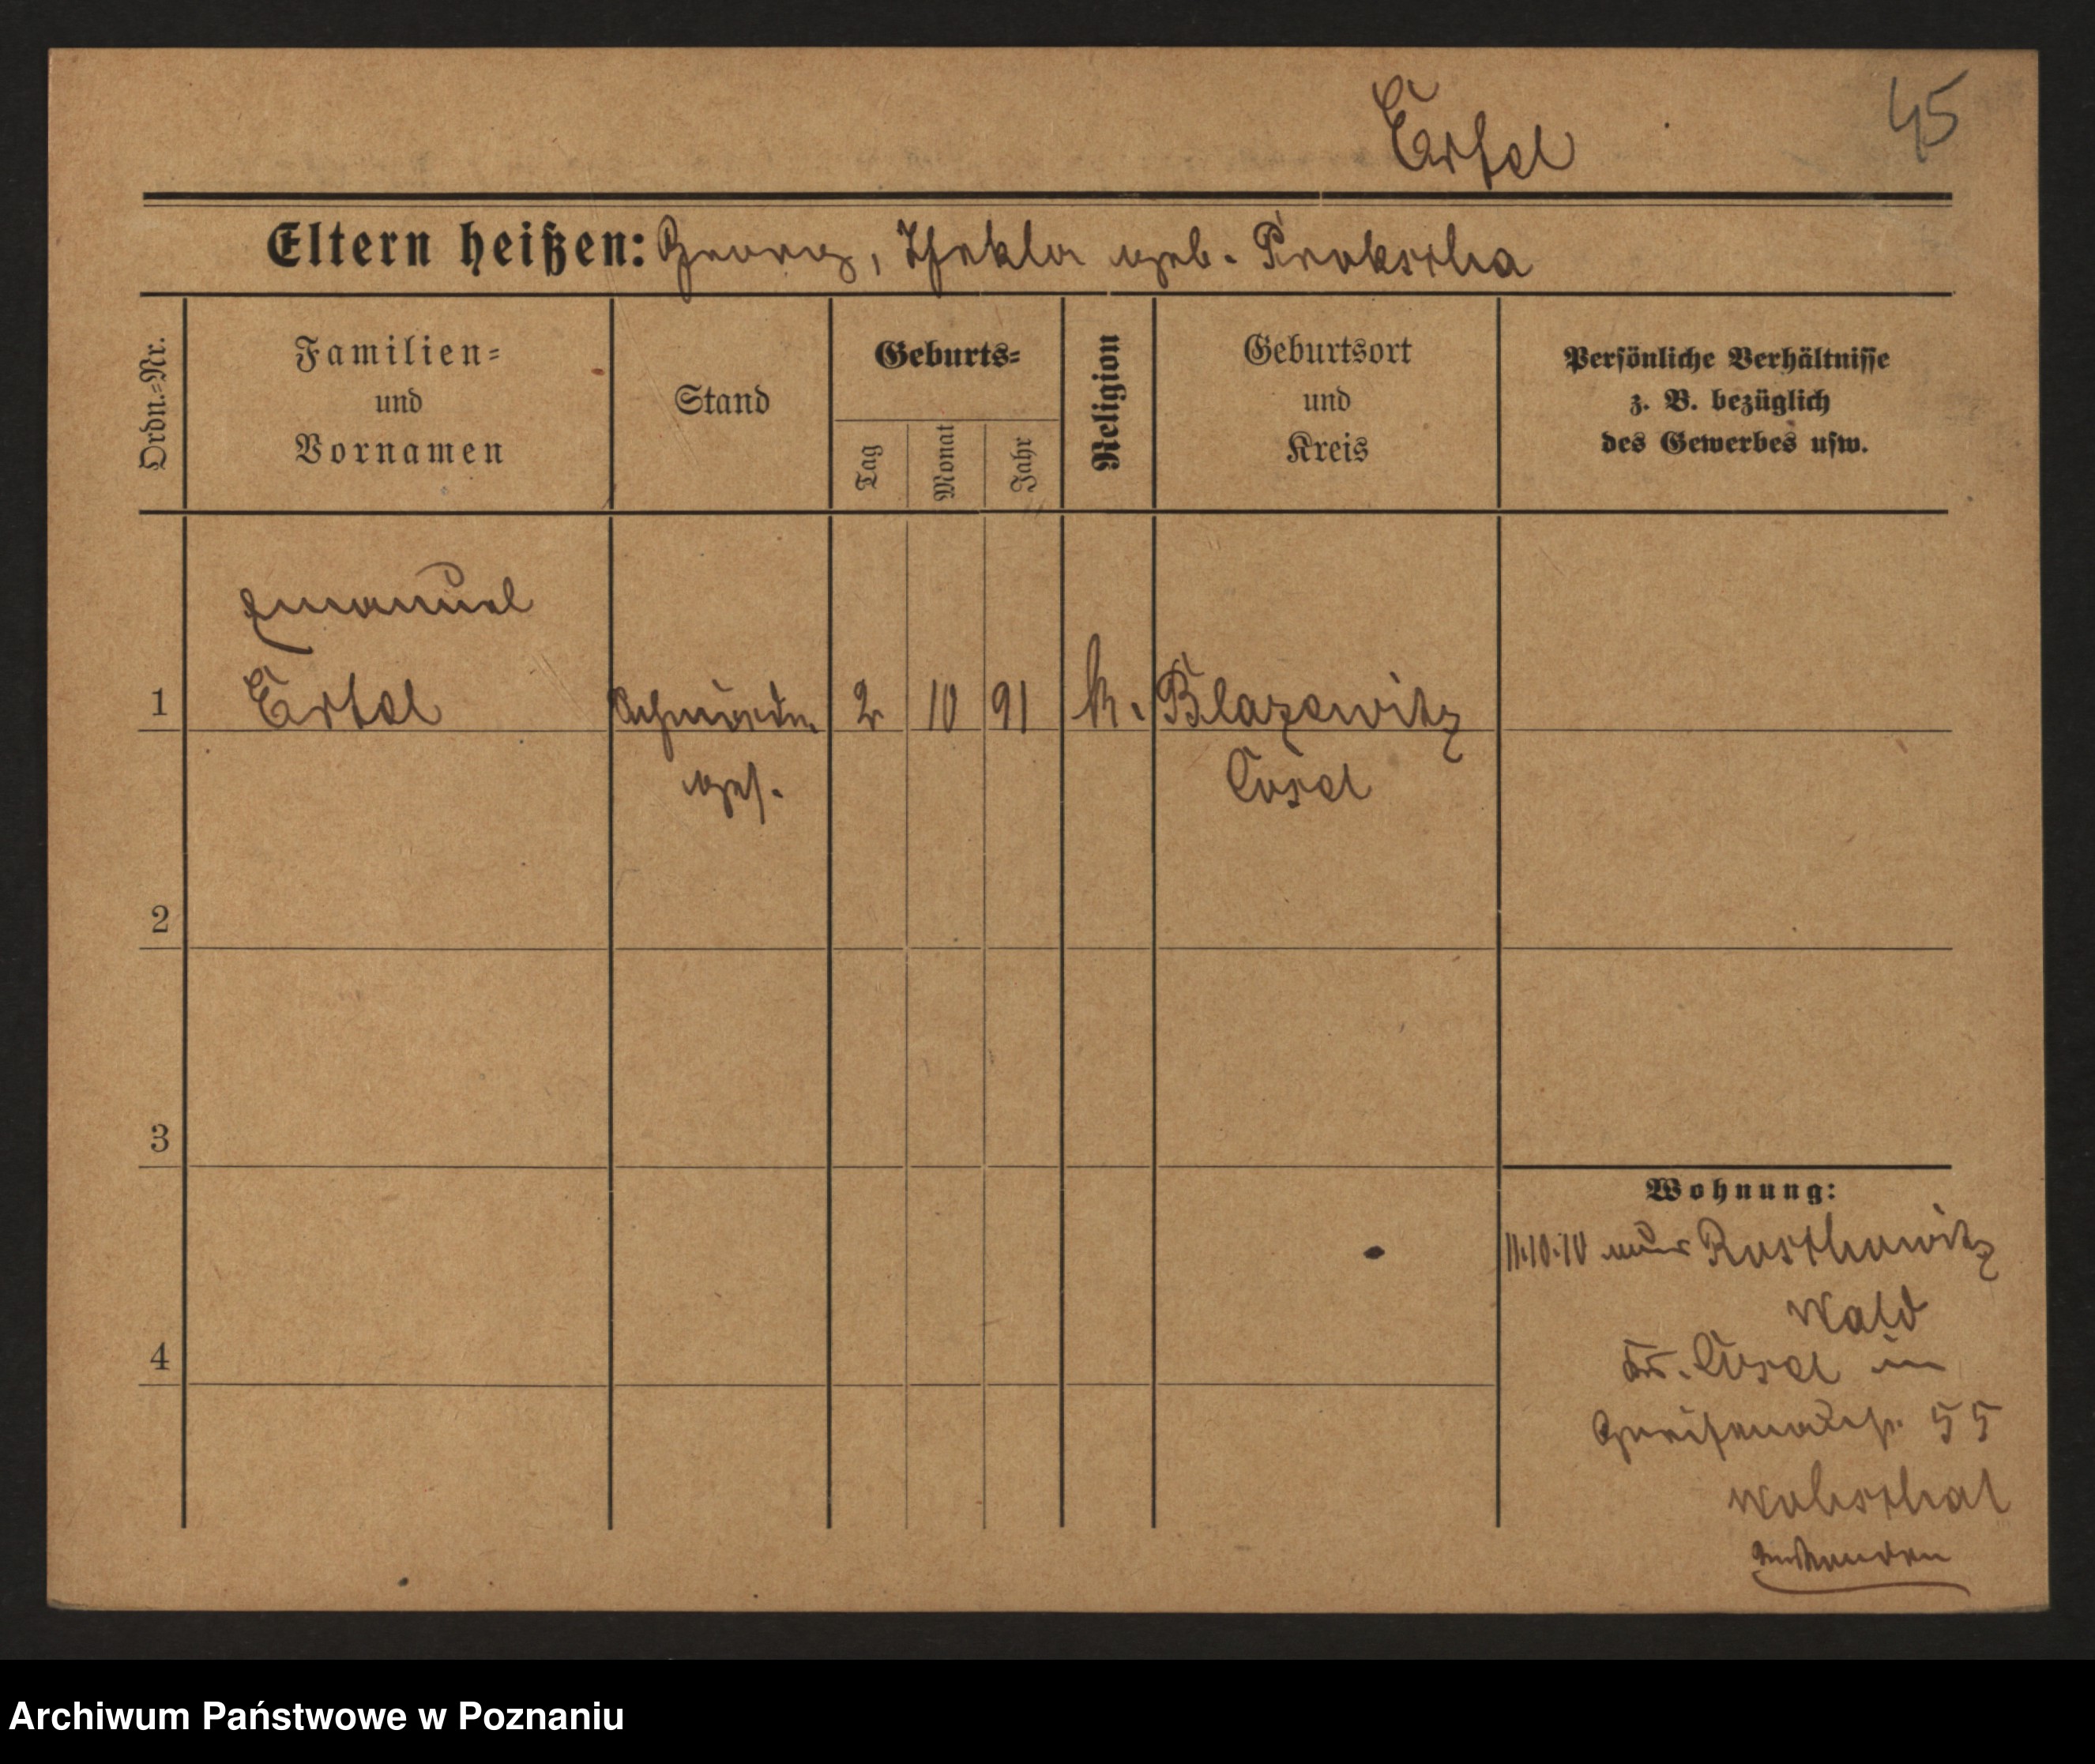 45
Ertel
Eltern heißen: Georg, Thekla geb. Prokscha
Ordn.=Nr.
Familien=
und
Vornamen
Stand
Geburts=
Tag
Monat
Jahr
Religion
Geburtsort
und
Kreis
Persönliche Verhältnisse
z. B. bezüglich
des Gewerbes usw.
Emanuel
1 Ertel 2 10 91 k. Blazewitz
ges. Cosel
2
3
Wohnung:
11.10.10 Roschowitz
Wald
Kr. Cosel in
4
55
Archiwum Państwowe w Poznaniu